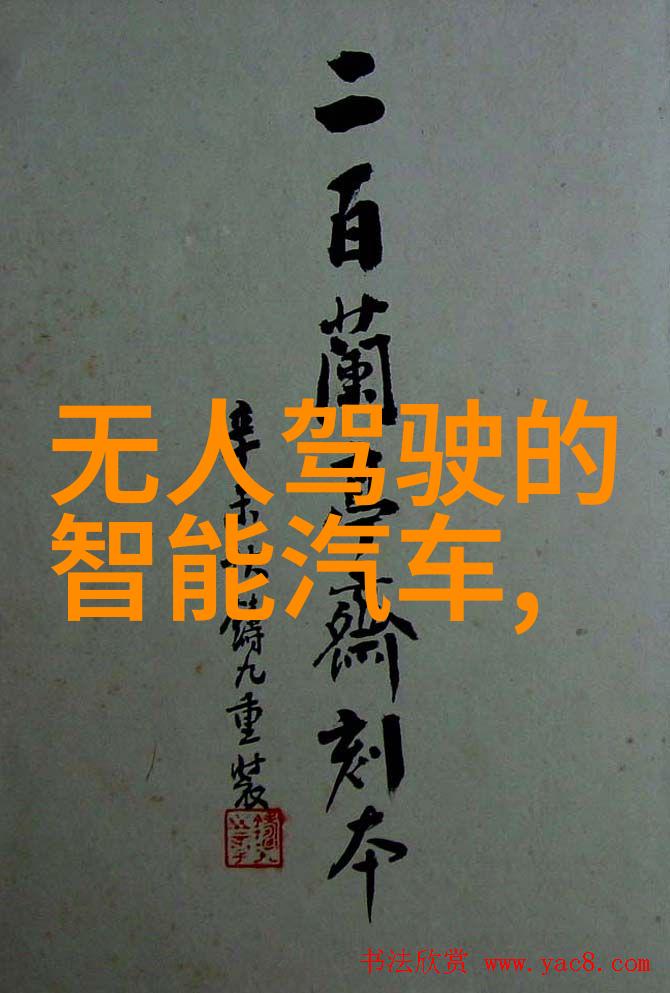 二百蘭亭齋刻本
辛未秋鑄九重裝
无人驾驶的
智能汽车,
书法欣赏 www.yac8.com